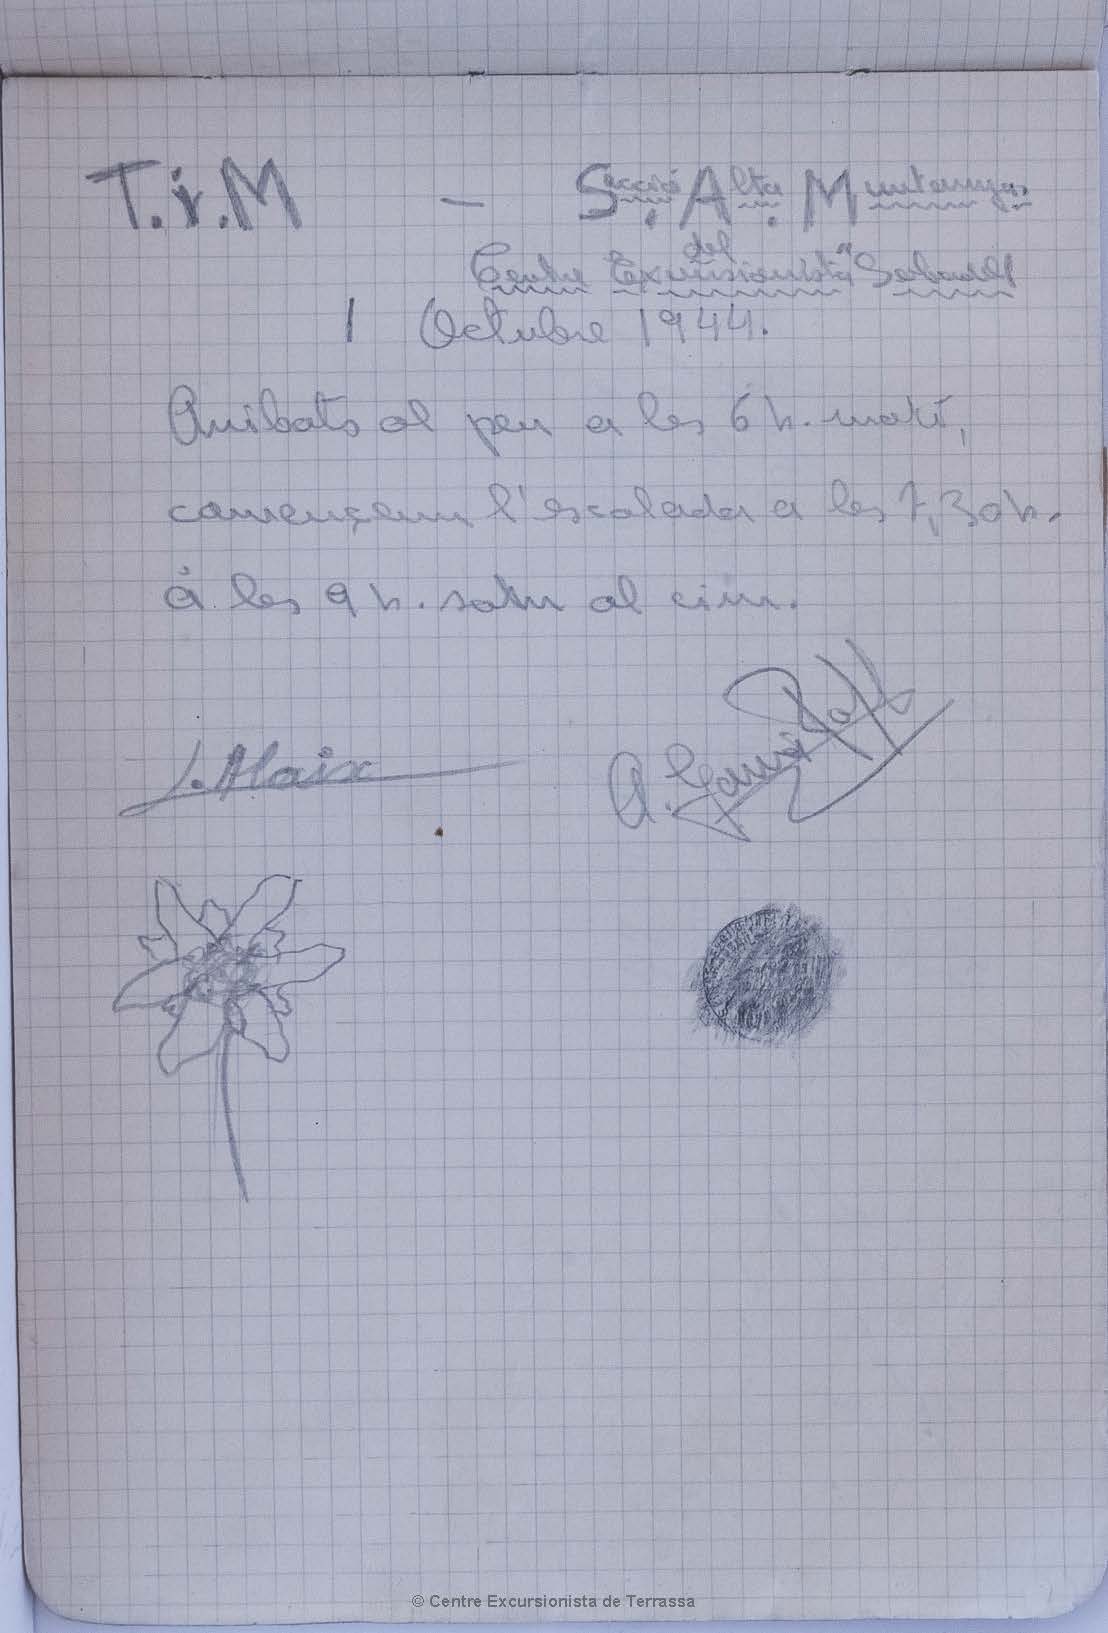 T.i.M — Secció Alta Muntanya
del
Centre Excursionista "Sabadell
1 Octubre 1944.
Arribats al peu a les 6 h. matí,
començem l'escalada a les 7,30 h.
á les 9 h. som al cim.
J. Alaix
A.
© Centre Excursionista de Terrassa